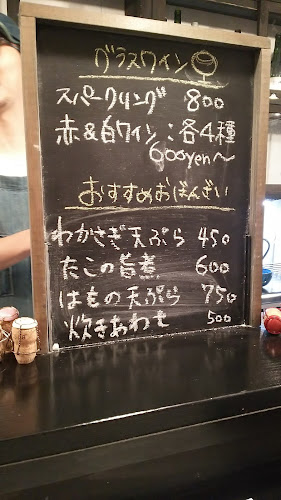 グラスワイン
スパークリング 800
赤&白ワイン:各4種
600yen〜
おすすめおばんざい
わかさぎ天ぷら 450
たこの旨煮 600
はもの天ぷら 750
炊きあわせ 500